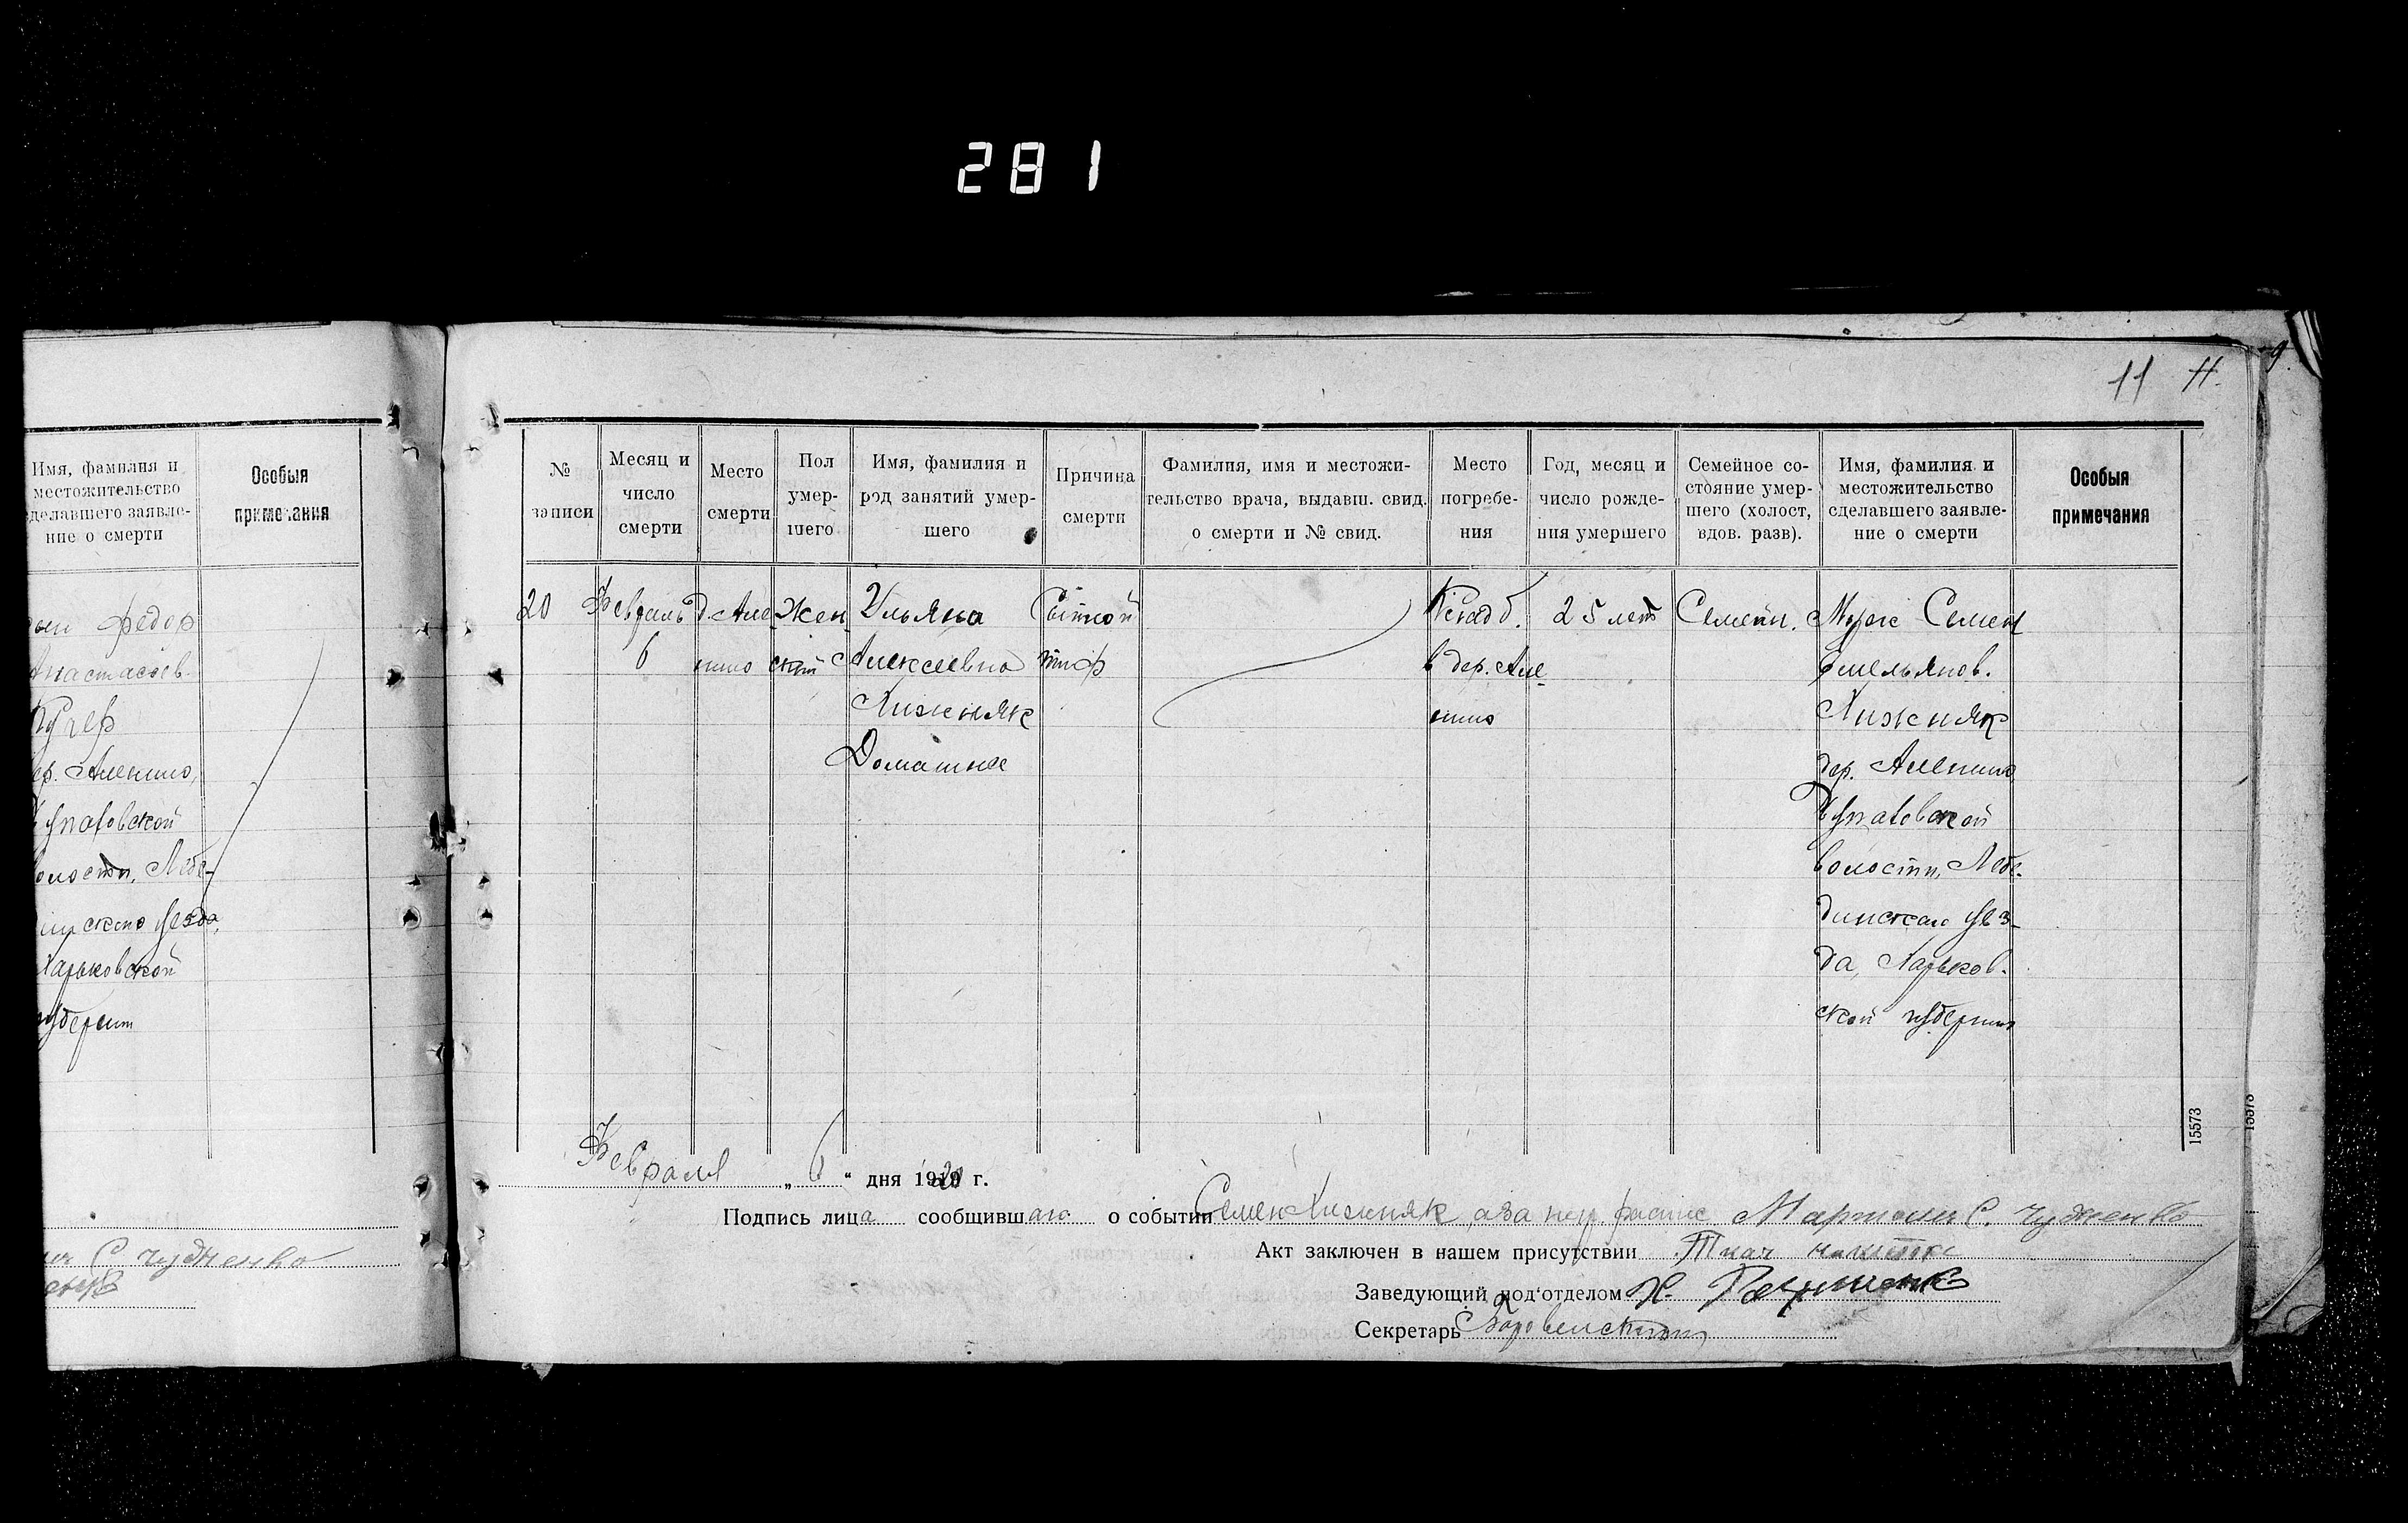 281
11 11.
9.
Имя, фамилия и
местожительство
сделавшего заявле-
ние о смерти
Особыя
примечания
федор
Анастасьев.
Кучер
дер. Аленино,
волости, Лебе-
уезда,
Харьковской
губернии
№
записи
Месяц и
число
смерти
Место
смерти
Пол
умер-
шего
Имя, фамилия и
род занятий умер-
шего
Причина
смерти
Фамилия, имя и местожи-
тельство врача, выдавш. свид.
о смерти и № свид.
Место
погребе-
ния
Год, месяц и
число рожде-
ния умершего
Семейное со-
стояние умер-
шего (холост,
вдов. разв).
Имя, фамилия и
местожительство
сделавшего заявле-
ние о смерти
Особыя
примечания
20
Февраль
6
Жен-
ский
Ульяна
Алексеевна
Хижняк
Домашнее
Сыпной
тиф
Кладб.
в дер.
25 лет
Семейн.
Муж Семен
Емельянов.
Хижняк
дер.
волости, Лебе-
динскаго уез-
да, Харьков-
ской губернии
15573
15573
Февраля „ 6 “ дня 1920 г.
Подпись лица сообщившаго о событии Семен Хижняк, а за нер. распис С. Чудненко
С. Чудненко
Акт заключен в нашем присутствии
Заведующий под'отделом
Секретарь